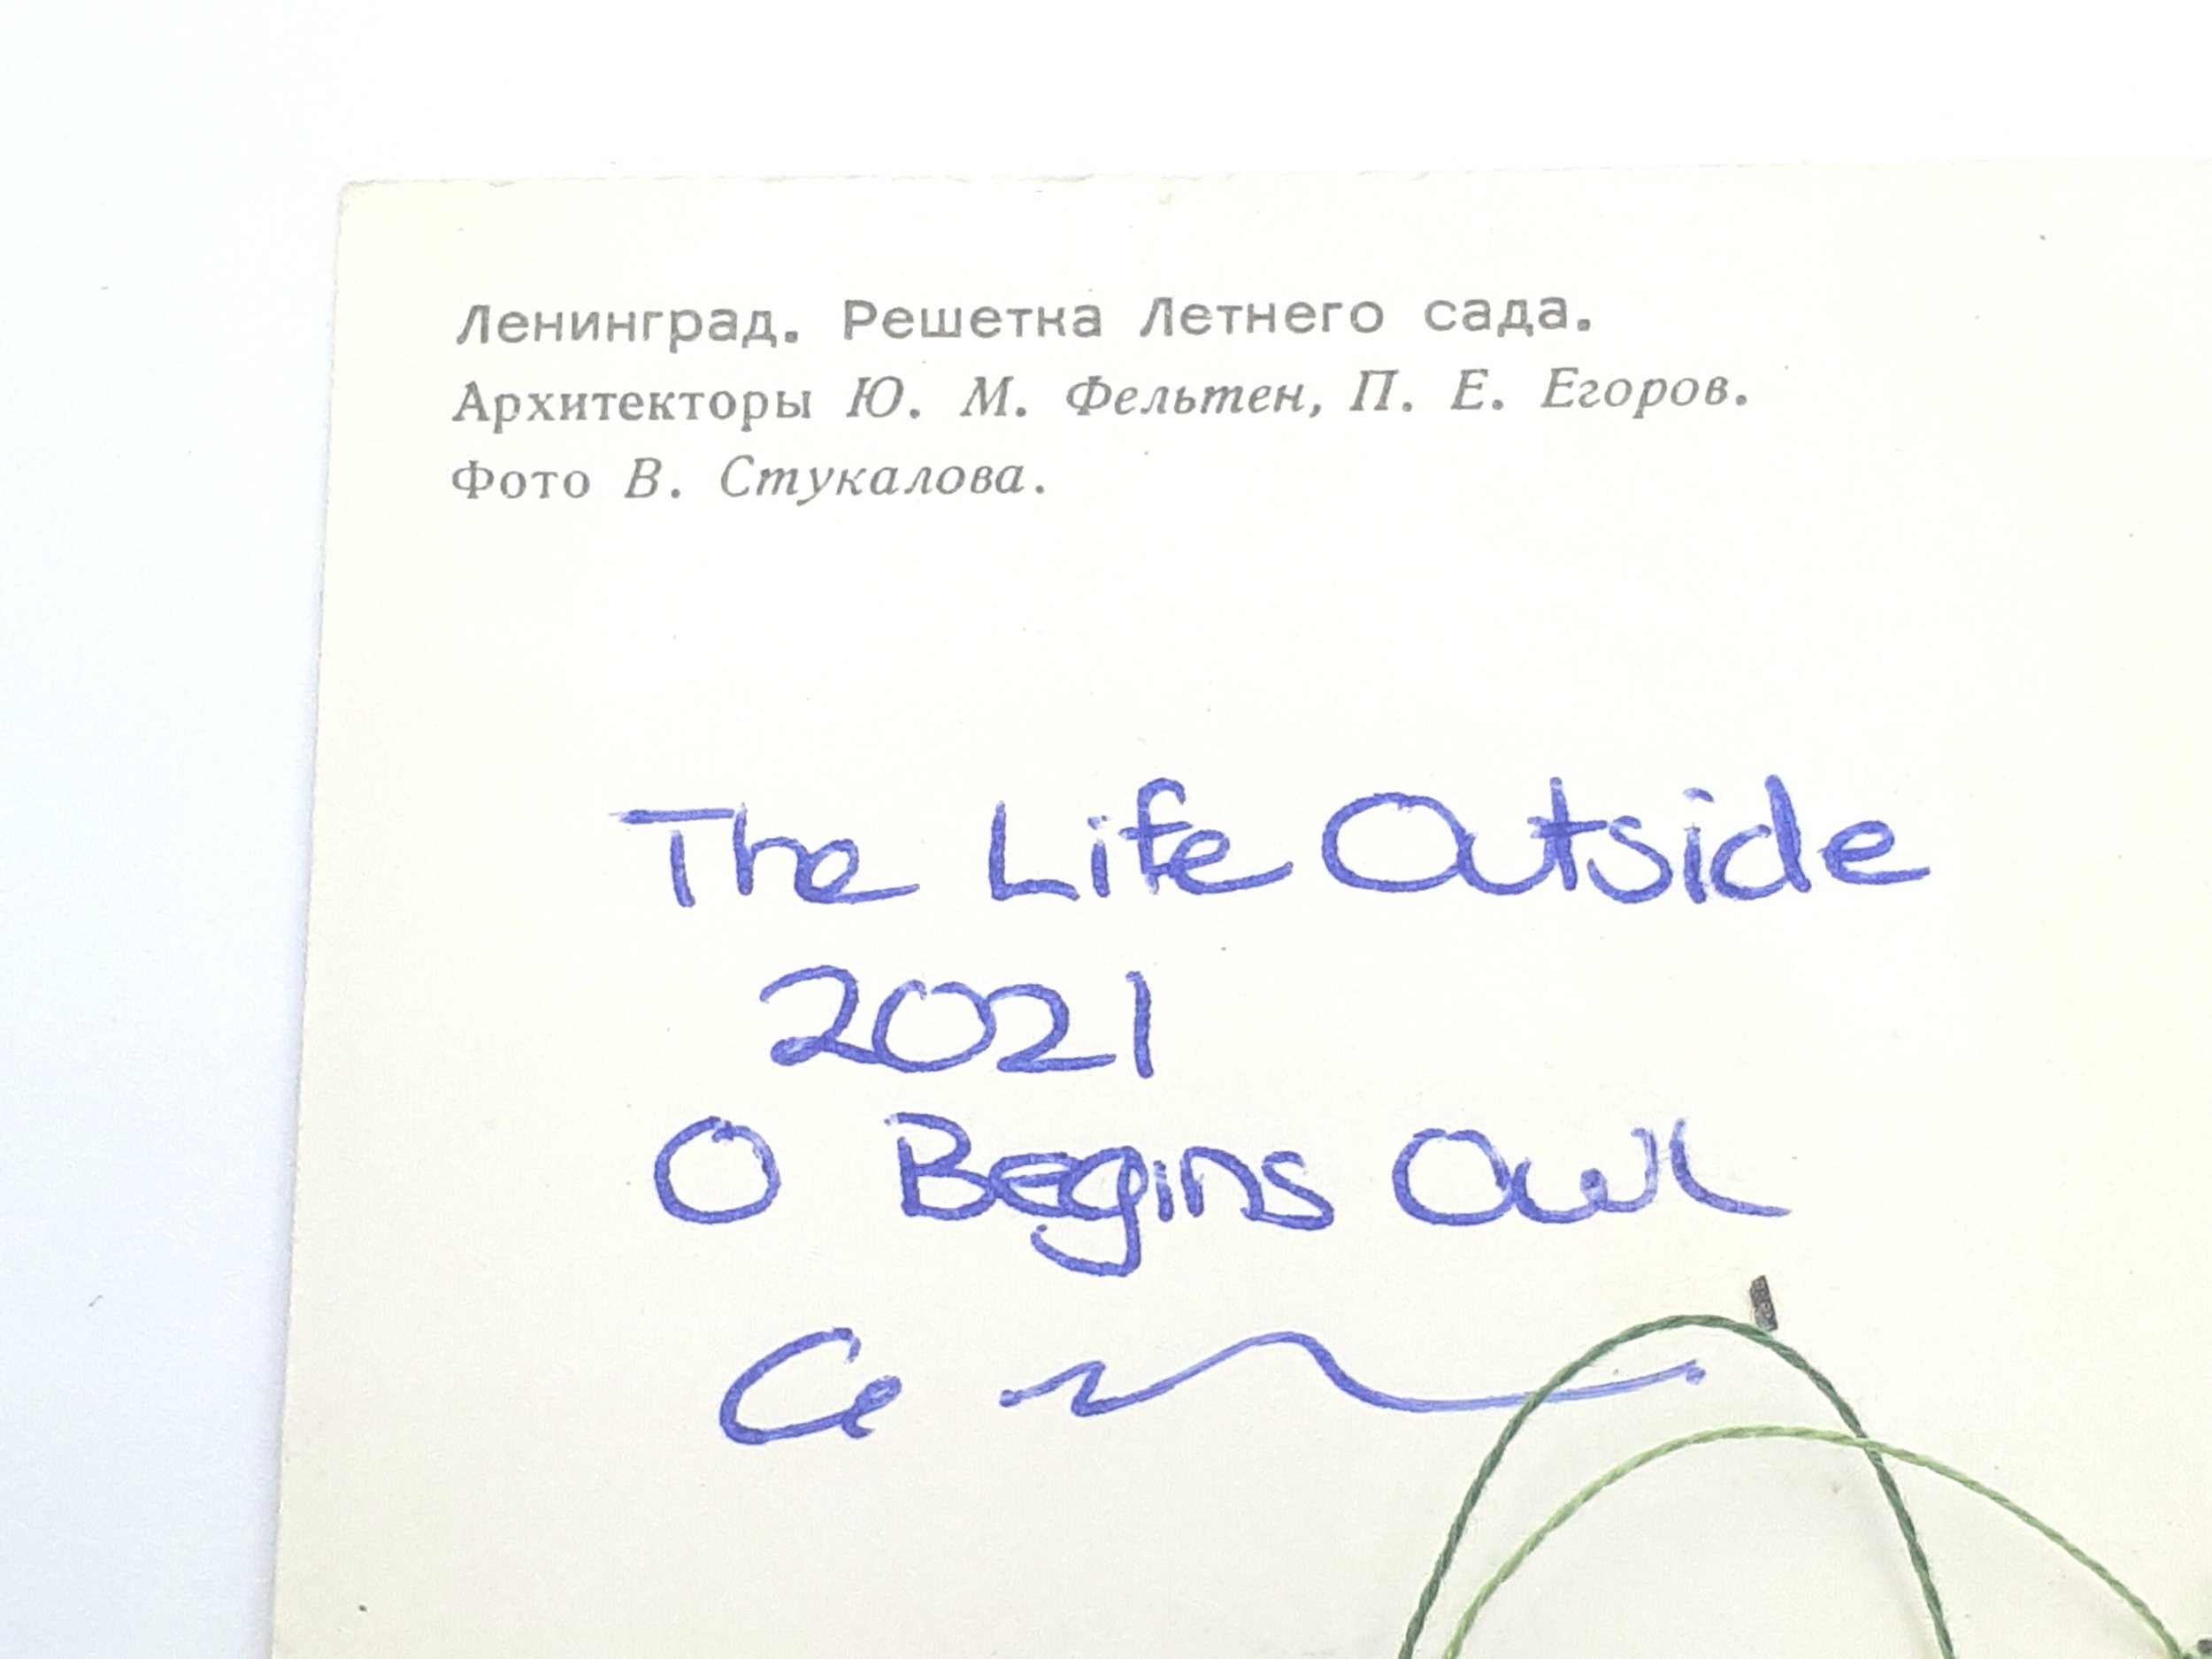 Ленинград. Решетка Летнего сада.
Архитекторы Ю. М. Фельтен, П. Е. Егоров.
Фото В. Стукалова.
The Life Outside
2021
O Begins Owl